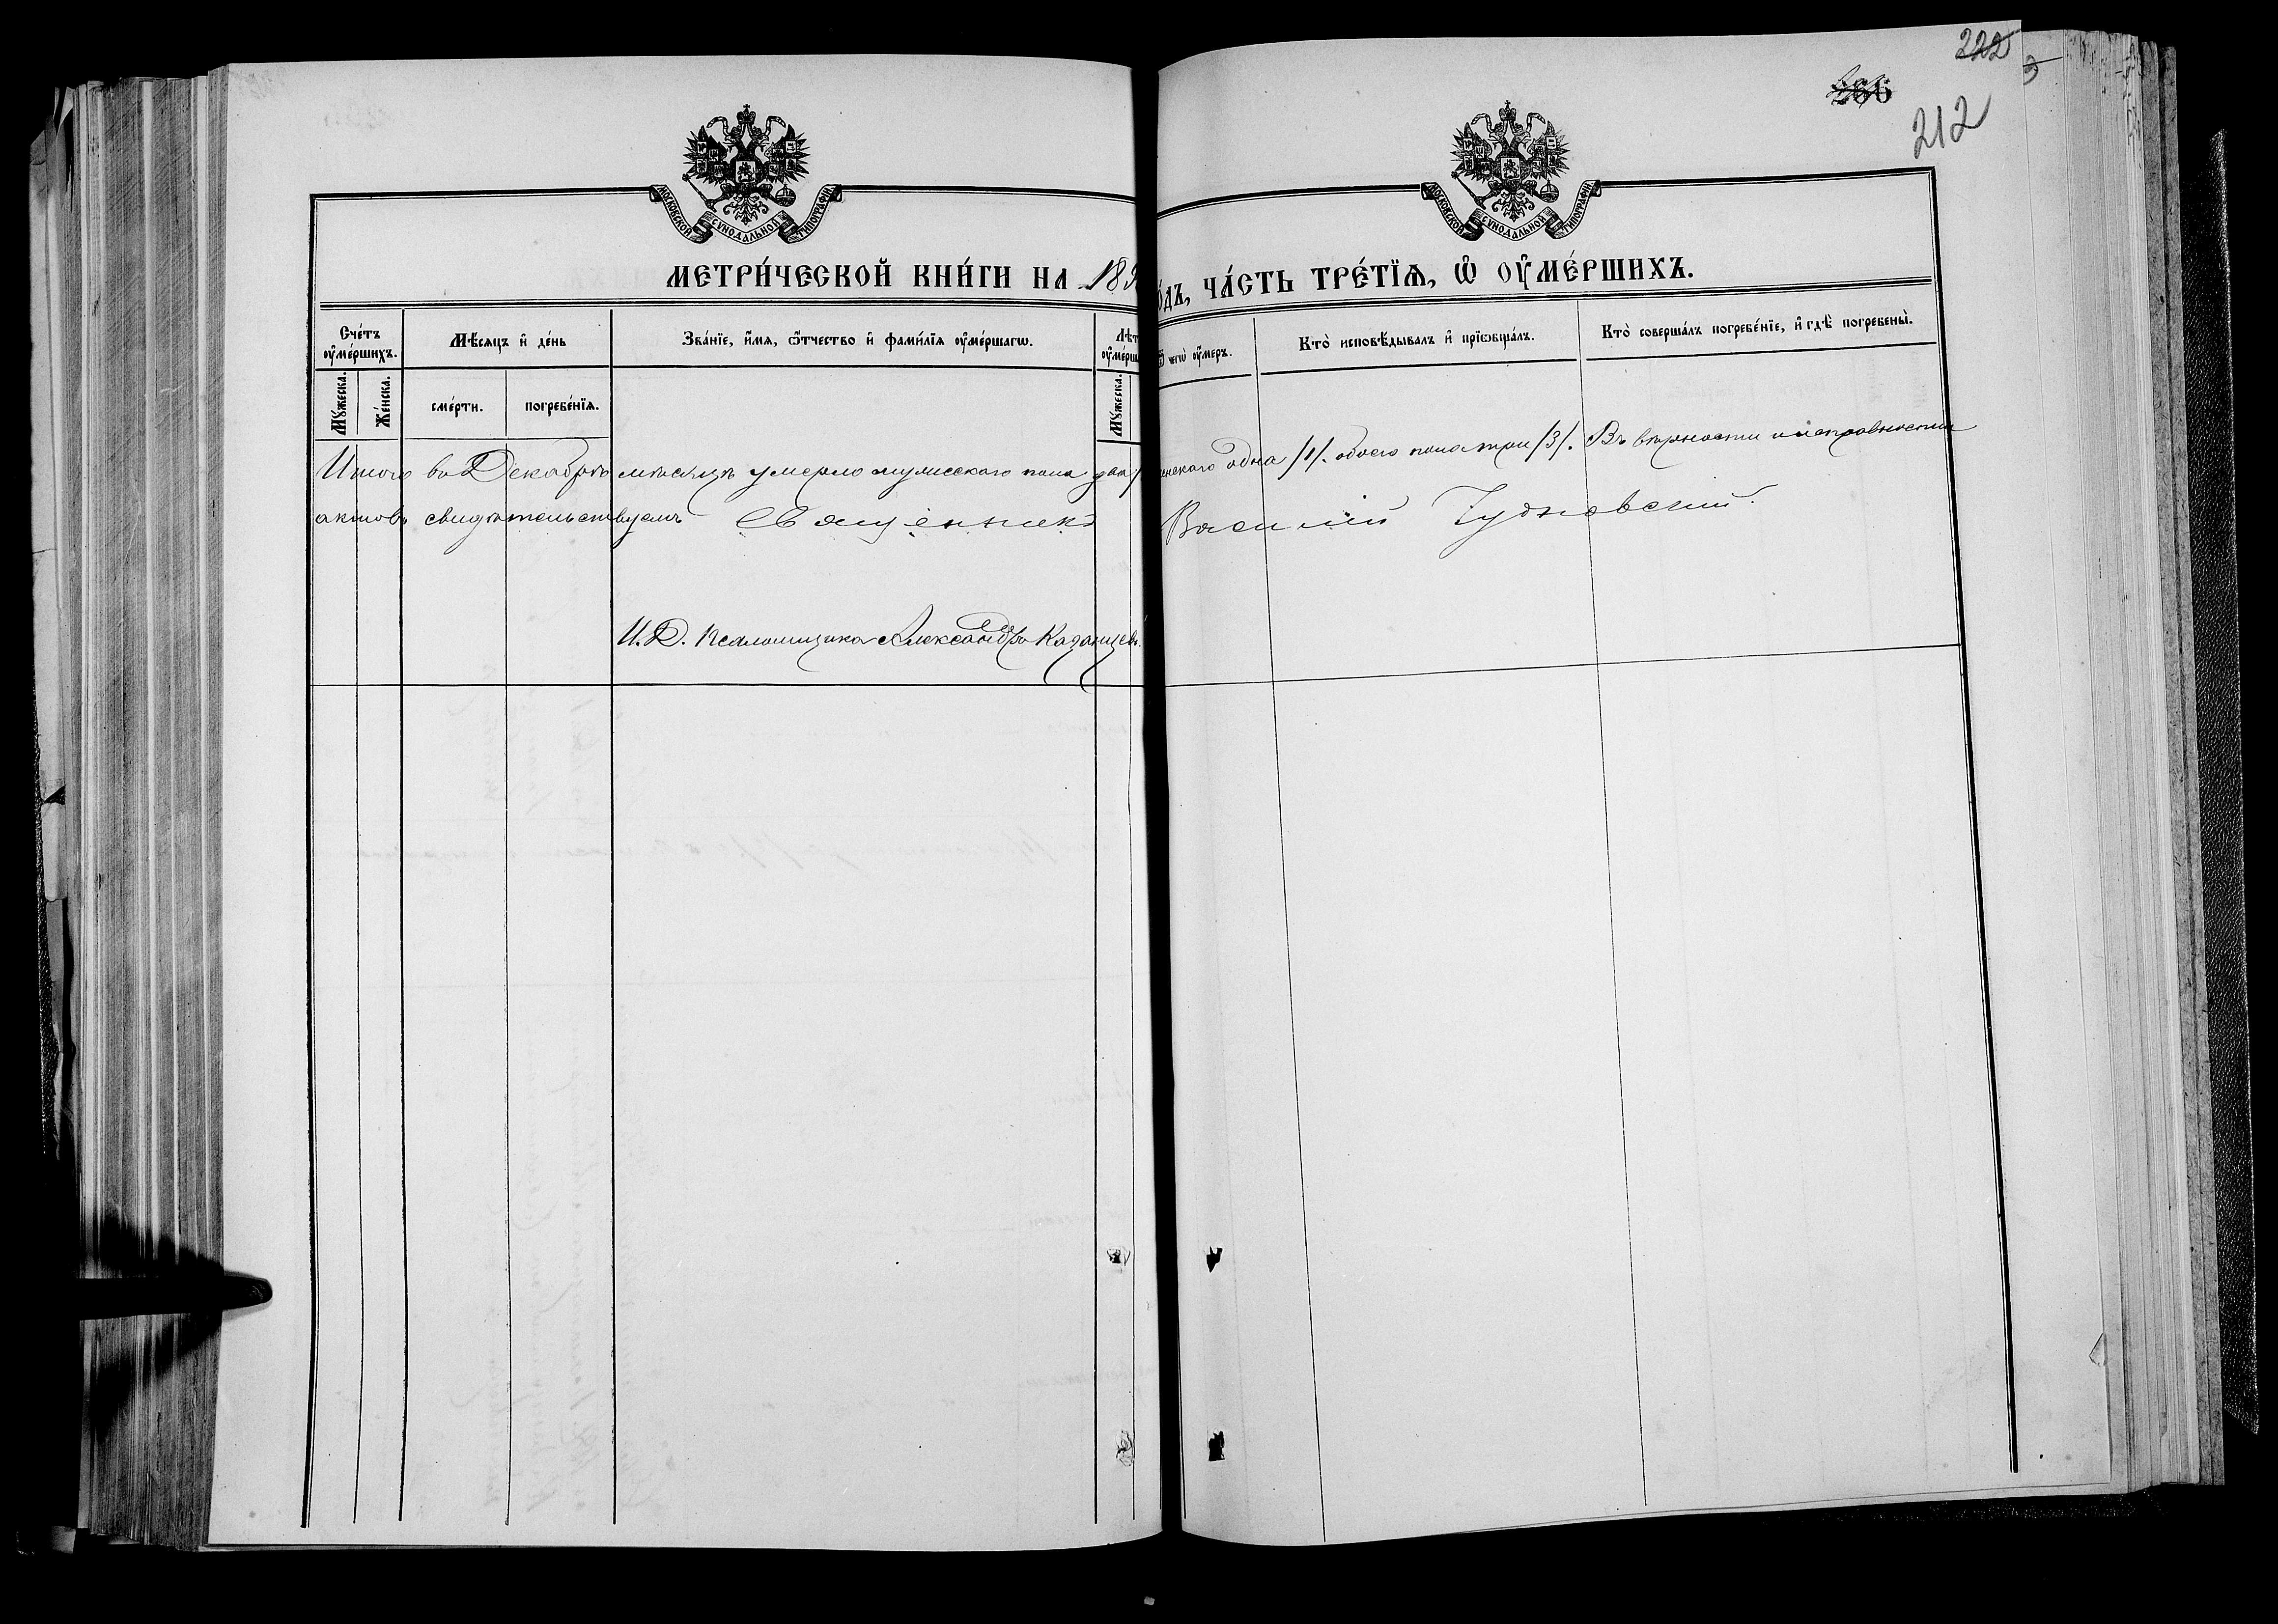 222
3
266
212
МОСКОВСКОЙ СУНОДАЛЬНОЙ ТИПОГРАФІИ
МОСКОВСКОЙ СУНОДАЛЬНОЙ ТИПОГРАФІИ
МЕТРИ́ЧЕСКОЙ КНИ́ГИ НА 18 о́дъ, ЧА́СТЬ ТРЕ́ТЇѦ, Ѡ҆ ОУ҆МЕ́РШИХЪ.
Сче́тъ оу҆ме́ршихъ.
Мѣ́сѧцъ и҆ де́нь
Зва́нїе, и҆́мѧ, ѻ҆́тчество и҆ фами́лїѧ оу҆ме́ршагѡ.
Лѣт оу҆ме́рш
Ѿ чегѡ̀ оу҆́меръ.
Кто̀ исповѣ́дывалъ и҆ прїѡбща́лъ.
Кто̀ соверша́лъ погребе́нїе, и҆ гдѣ̀ погребены̀.
Мꙋ́жеска.
Же́нска.
сме́рти.
погребе́нїѧ.
Мꙋ́жеска.
Итого во Декабрѣ мѣсяцѣ умерло мужескаго пола два / енскаго одна /1/. обоего пола три /3/. Въ вѣрности и исправности
актовъ свидѣтельствуемъ Священникъ Василій Чудновскій.
И. Д. Псаломщика Александръ Казанцевъ.